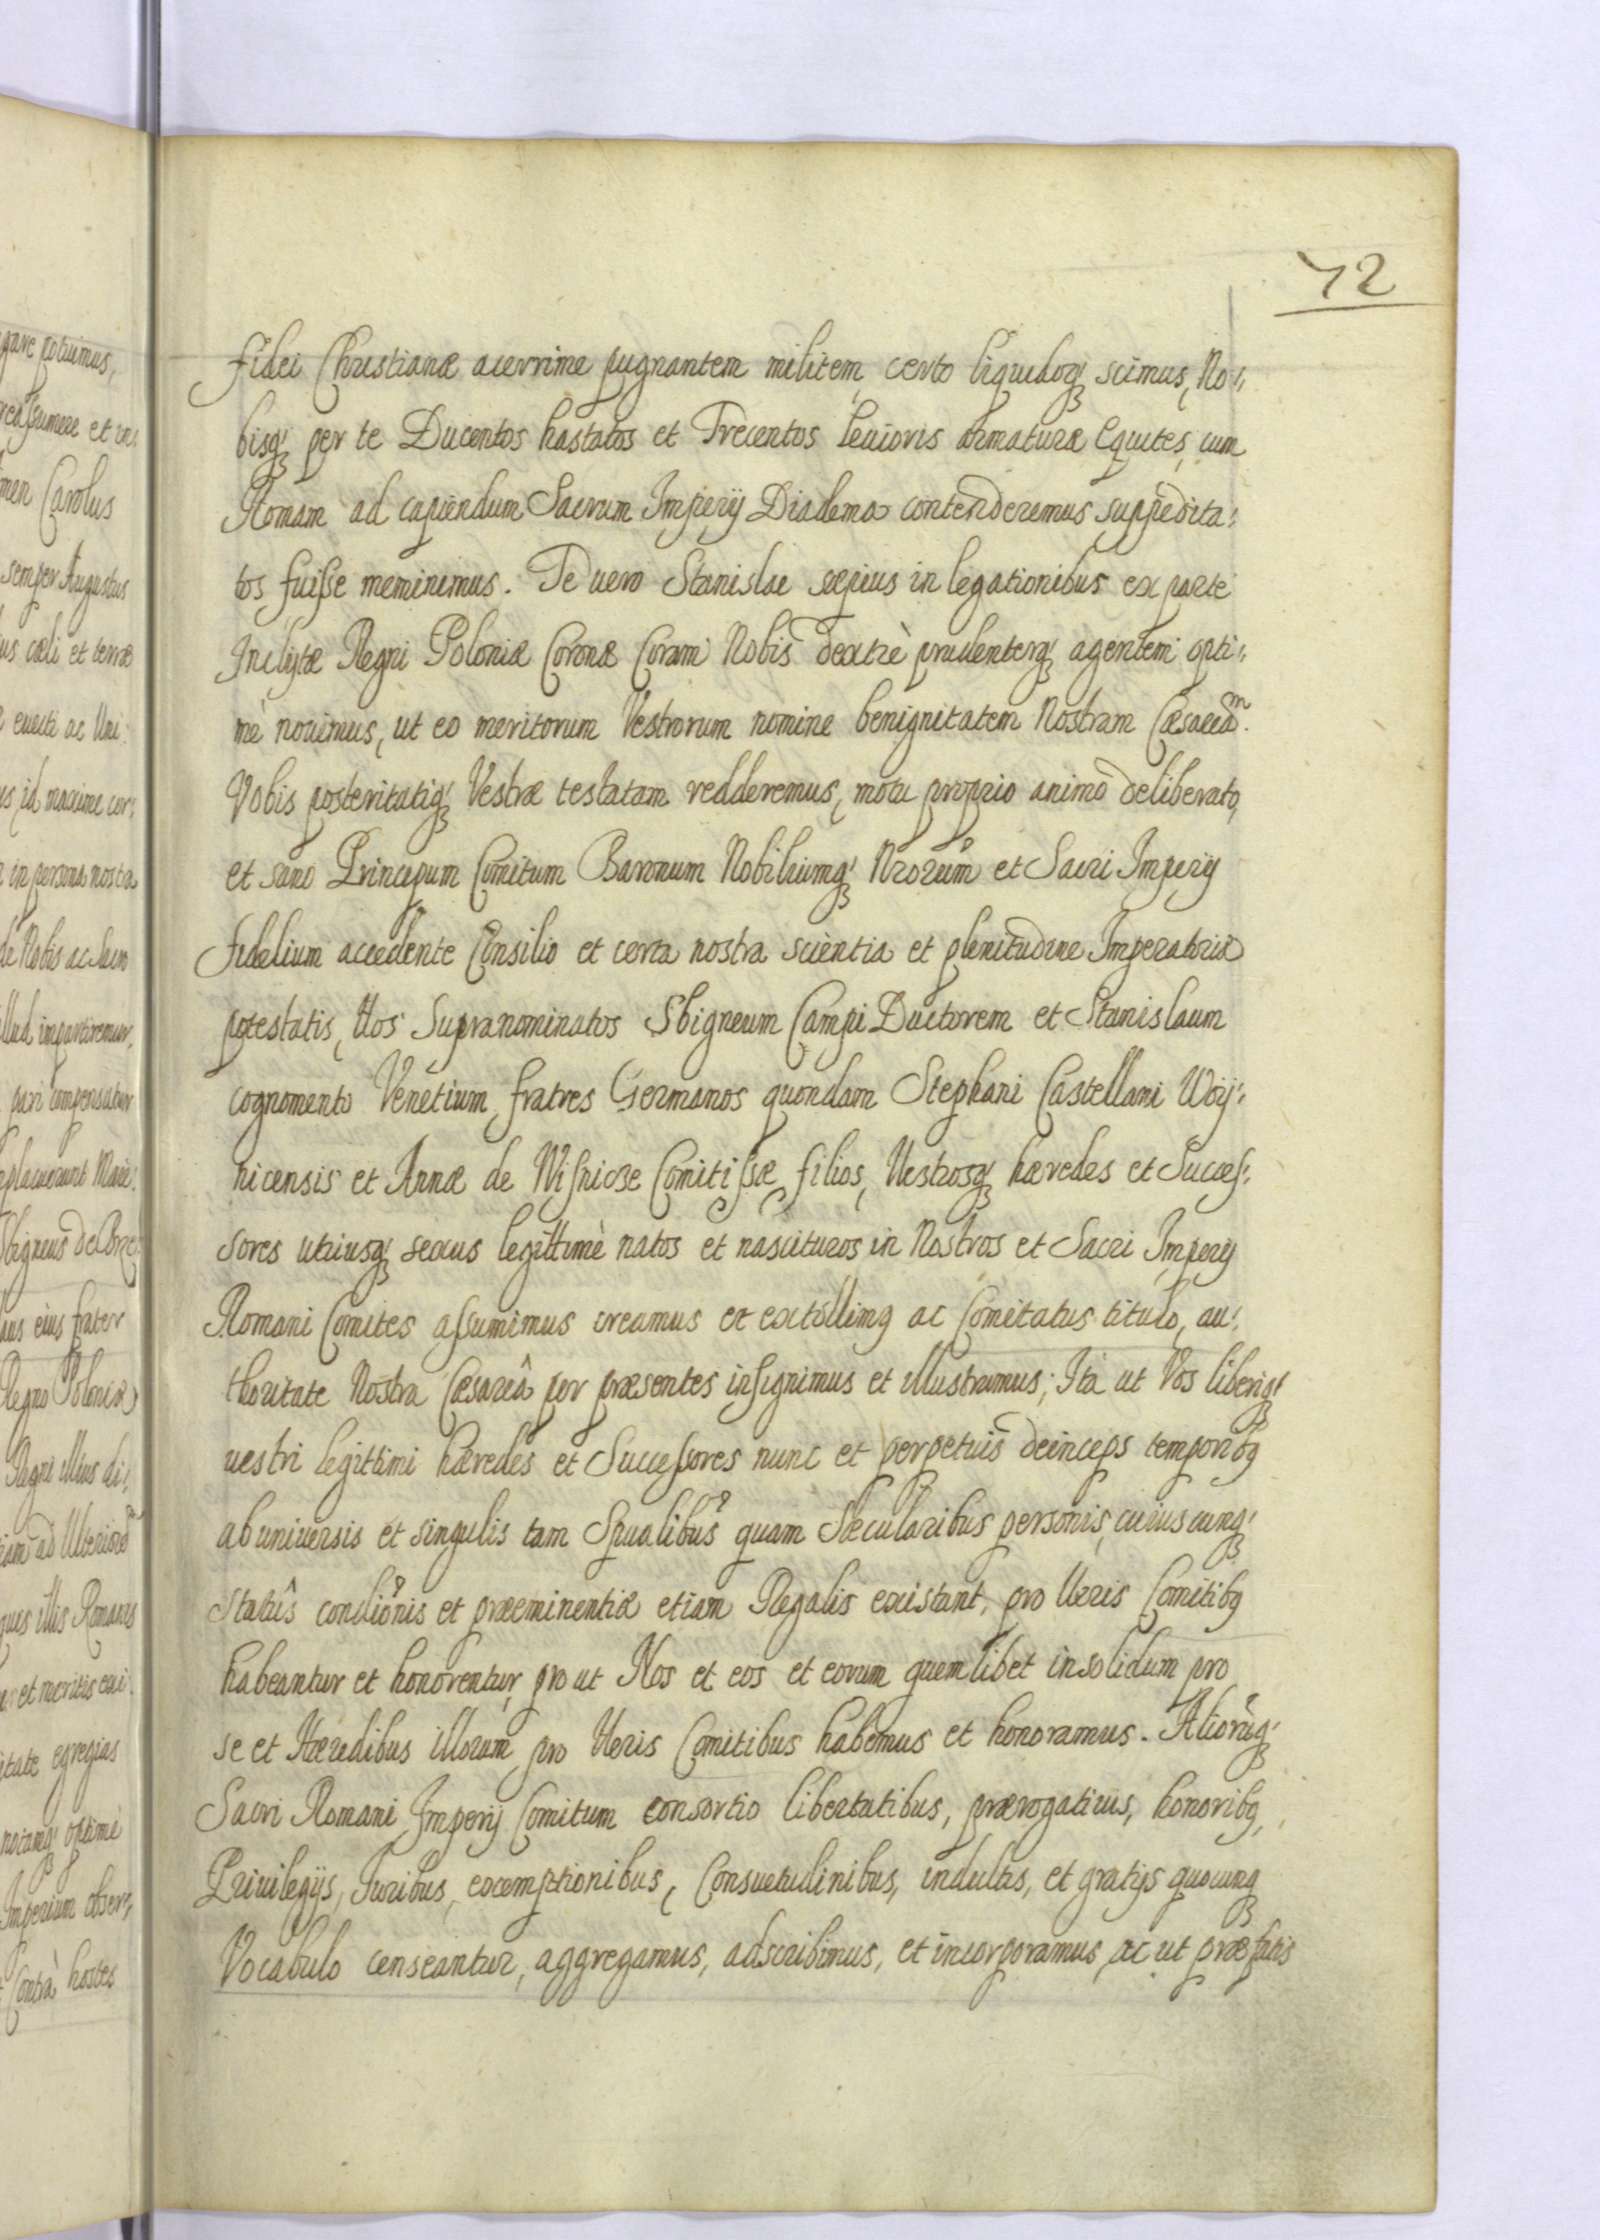 72
fidei Christianæ acerrime pugnantem militem, certo liquidoq; scimus, No:
bisq; per te Ducentos hastatos et Trecentos leuioris armaturæ Equites, cum
Romam ad capiendum Sacrum Imperij Diadema contenderemus suppedita:
tos fuisse meminimus. Te uero Stanislae sæpius in legationibus ex parte
Inclytæ Regni Poloniæ Coronæ Coram Nobis dextrè prudenterq; agentem opti:
mè nouimus, ut eo meritorum Vestrorum nomine benignitatem Nostram Cæsareãm.
Vobis posteritatiq; Vestræ testatam redderemus, motu proprio animo deliberato,
et sano Principum Comitum Baronum Nobiliumq; Nrorum et Sacri Imperij
fidelium accedente Consilio et certa nostra scientia et plenitudine Imperatoriæ
potestatis, Uos Supranominatos Sbigneum Campi Ductorem et Stanislaum
cognomento Venetium, fratres Germanos quondam Stephani Castellani Woÿ:
nicensis et Annæ de Wisnicze Comitissæ filios, Uestrosq; hæredes et Succes:
sores utriusq; sexus legittimè natos et nascituros in Nostros et Sacri Imperij
Romani Comites assumimus creamus et extollimq ac Comitatus titulo, au:
thoritate Nostra Cæsareâ per præsentes insignimus et illustramus; Ità ut Vos liberiq;
uestri legittimi hæredes et Successores nunc et perpetuis deinceps temporibq
ab uniuersis et singulis tam Spualibus quam Sæcularibus personis, cuiuscunq;
Statûs condionis et præeminentiæ etiam Regalis existant, pro Ueris Comitibq
habeantur et honorentur, pro ut Nos et eos et eorum quemlibet insolidum pro
se et Hæredibus illorum, pro Ueris Comitibus habemus et honoramus. Aliorũq;
Sacri Romani Imperij Comitum consortio libertatibus, prærogatiuis, honoribq,
Priuilegijs, Iuribus, exemptionibus, Consuetudinibus, indultis, et gratijs quocunq
Vocabulo censeantur, aggregamus, adscribimus, et incorporamus, ac ut præfatis